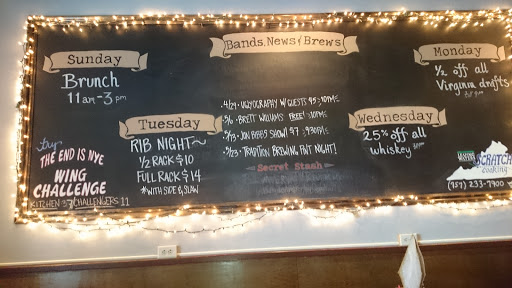 Sunday
Brunch
11am-3pm
try
THE END IS NYE
WING
CHALLENGE
KITCHEN 37 / CHALLENGERS 11
Tuesday
RIB NIGHT~
1/2 RACK $10
FULL RACK $14
*WITH SIDE & SLAW
Bands, News & Brews
4/29 - UGLYOGRAPHY W/ GUESTS $5; 10PM
5/6 - BRETT WILLIAMS FREE! 10PM
5/13 - JON BIBBS SHOW! $7 9:30PM
5/23 - TRADITION BREWING, PINT NIGHT!
Secret Stash
Monday
1/2 off all
Virginia drafts
Wednesday
25% off all
whiskey
SCRATCH
cooking
(757) 233-7900